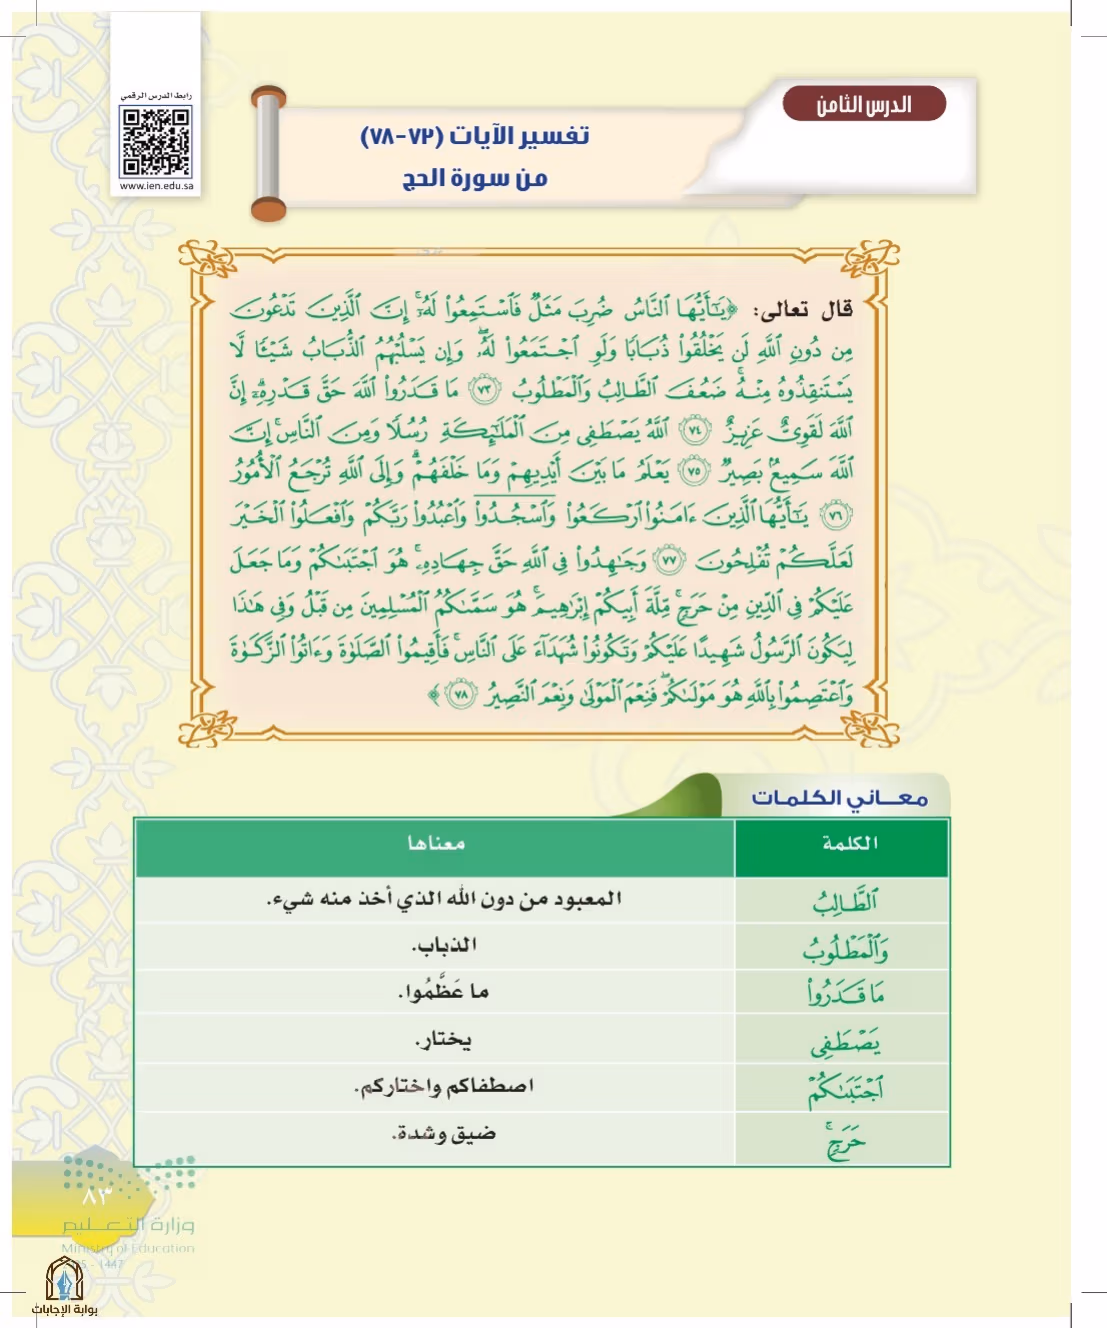 رابط الدرس الرقمي
www.ien.edu.sa
الدرس الثامن
تفسير الآيات (٧٢-٧٨)
من سورة الحج
قال تعالى: ﴿يَٰٓأَيُّهَا ٱلنَّاسُ ضُرِبَ مَثَلٞ فَٱسۡتَمِعُواْ لَهُۥٓۚ إِنَّ ٱلَّذِينَ تَدۡعُونَ
مِن دُونِ ٱللَّهِ لَن يَخۡلُقُواْ ذُبَابٗا وَلَوِ ٱجۡتَمَعُواْ لَهُۥۖ وَإِن يَسۡلُبۡهُمُ ٱلذُّبَابُ شَيۡـٔٗا لَّا
يَسۡتَنقِذُوهُ مِنۡهُۚ ضَعُفَ ٱلطَّالِبُ وَٱلۡمَطۡلُوبُ ٧٣ مَا قَدَرُواْ ٱللَّهَ حَقَّ قَدۡرِهِۦٓۚ إِنَّ
ٱللَّهَ لَقَوِيٌّ عَزِيزٌ ٧٤ ٱللَّهُ يَصۡطَفِي مِنَ ٱلۡمَلَٰٓئِكَةِ رُسُلٗا وَمِنَ ٱلنَّاسِۚ إِنَّ
ٱللَّهَ سَمِيعُۢ بَصِيرٞ ٧٥ يَعۡلَمُ مَا بَيۡنَ أَيۡدِيهِمۡ وَمَا خَلۡفَهُمۡۚ وَإِلَى ٱللَّهِ تُرۡجَعُ ٱلۡأُمُورُ
٧٦ يَٰٓأَيُّهَا ٱلَّذِينَ ءَامَنُواْ ٱرۡكَعُواْ وَٱسۡجُدُواْ وَٱعۡبُدُواْ رَبَّكُمۡ وَٱفۡعَلُواْ ٱلۡخَيۡرَ
لَعَلَّكُمۡ تُفۡلِحُونَ ٧٧ وَجَٰهِدُواْ فِي ٱللَّهِ حَقَّ جِهَادِهِۦۚ هُوَ ٱجۡتَبَىٰكُمۡ وَمَا جَعَلَ
عَلَيۡكُمۡ فِي ٱلدِّينِ مِنۡ حَرَجٖۚ مِّلَّةَ أَبِيكُمۡ إِبۡرَٰهِيمَۚ هُوَ سَمَّىٰكُمُ ٱلۡمُسۡلِمِينَ مِن قَبۡلُ وَفِي هَٰذَا
لِيَكُونَ ٱلرَّسُولُ شَهِيدًا عَلَيۡكُمۡ وَتَكُونُواْ شُهَدَآءَ عَلَى ٱلنَّاسِۚ فَأَقِيمُواْ ٱلصَّلَوٰةَ وَءَاتُواْ ٱلزَّكَوٰةَ
وَٱعۡتَصِمُواْ بِٱللَّهِ هُوَ مَوۡلَىٰكُمۡۖ فَنِعۡمَ ٱلۡمَوۡلَىٰ وَنِعۡمَ ٱلنَّصِيرُ ٧٨﴾
معـــاني الكلمات
الكلمة معناها
ٱلطَّالِبُ المعبود من دون الله الذي أخذ منه شيء.
وَٱلۡمَطۡلُوبُ الذباب.
مَا قَدَرُواْ ما عَظَّمُوا.
يَصۡطَفِي يختار.
ٱجۡتَبَىٰكُمۡ اصطفاكم واختاركم.
حَرَجٖۚ ضيق وشدة.
٨٣
وزارة التعـــليم
Ministry of Education
- 1447
بوابة الإجابات